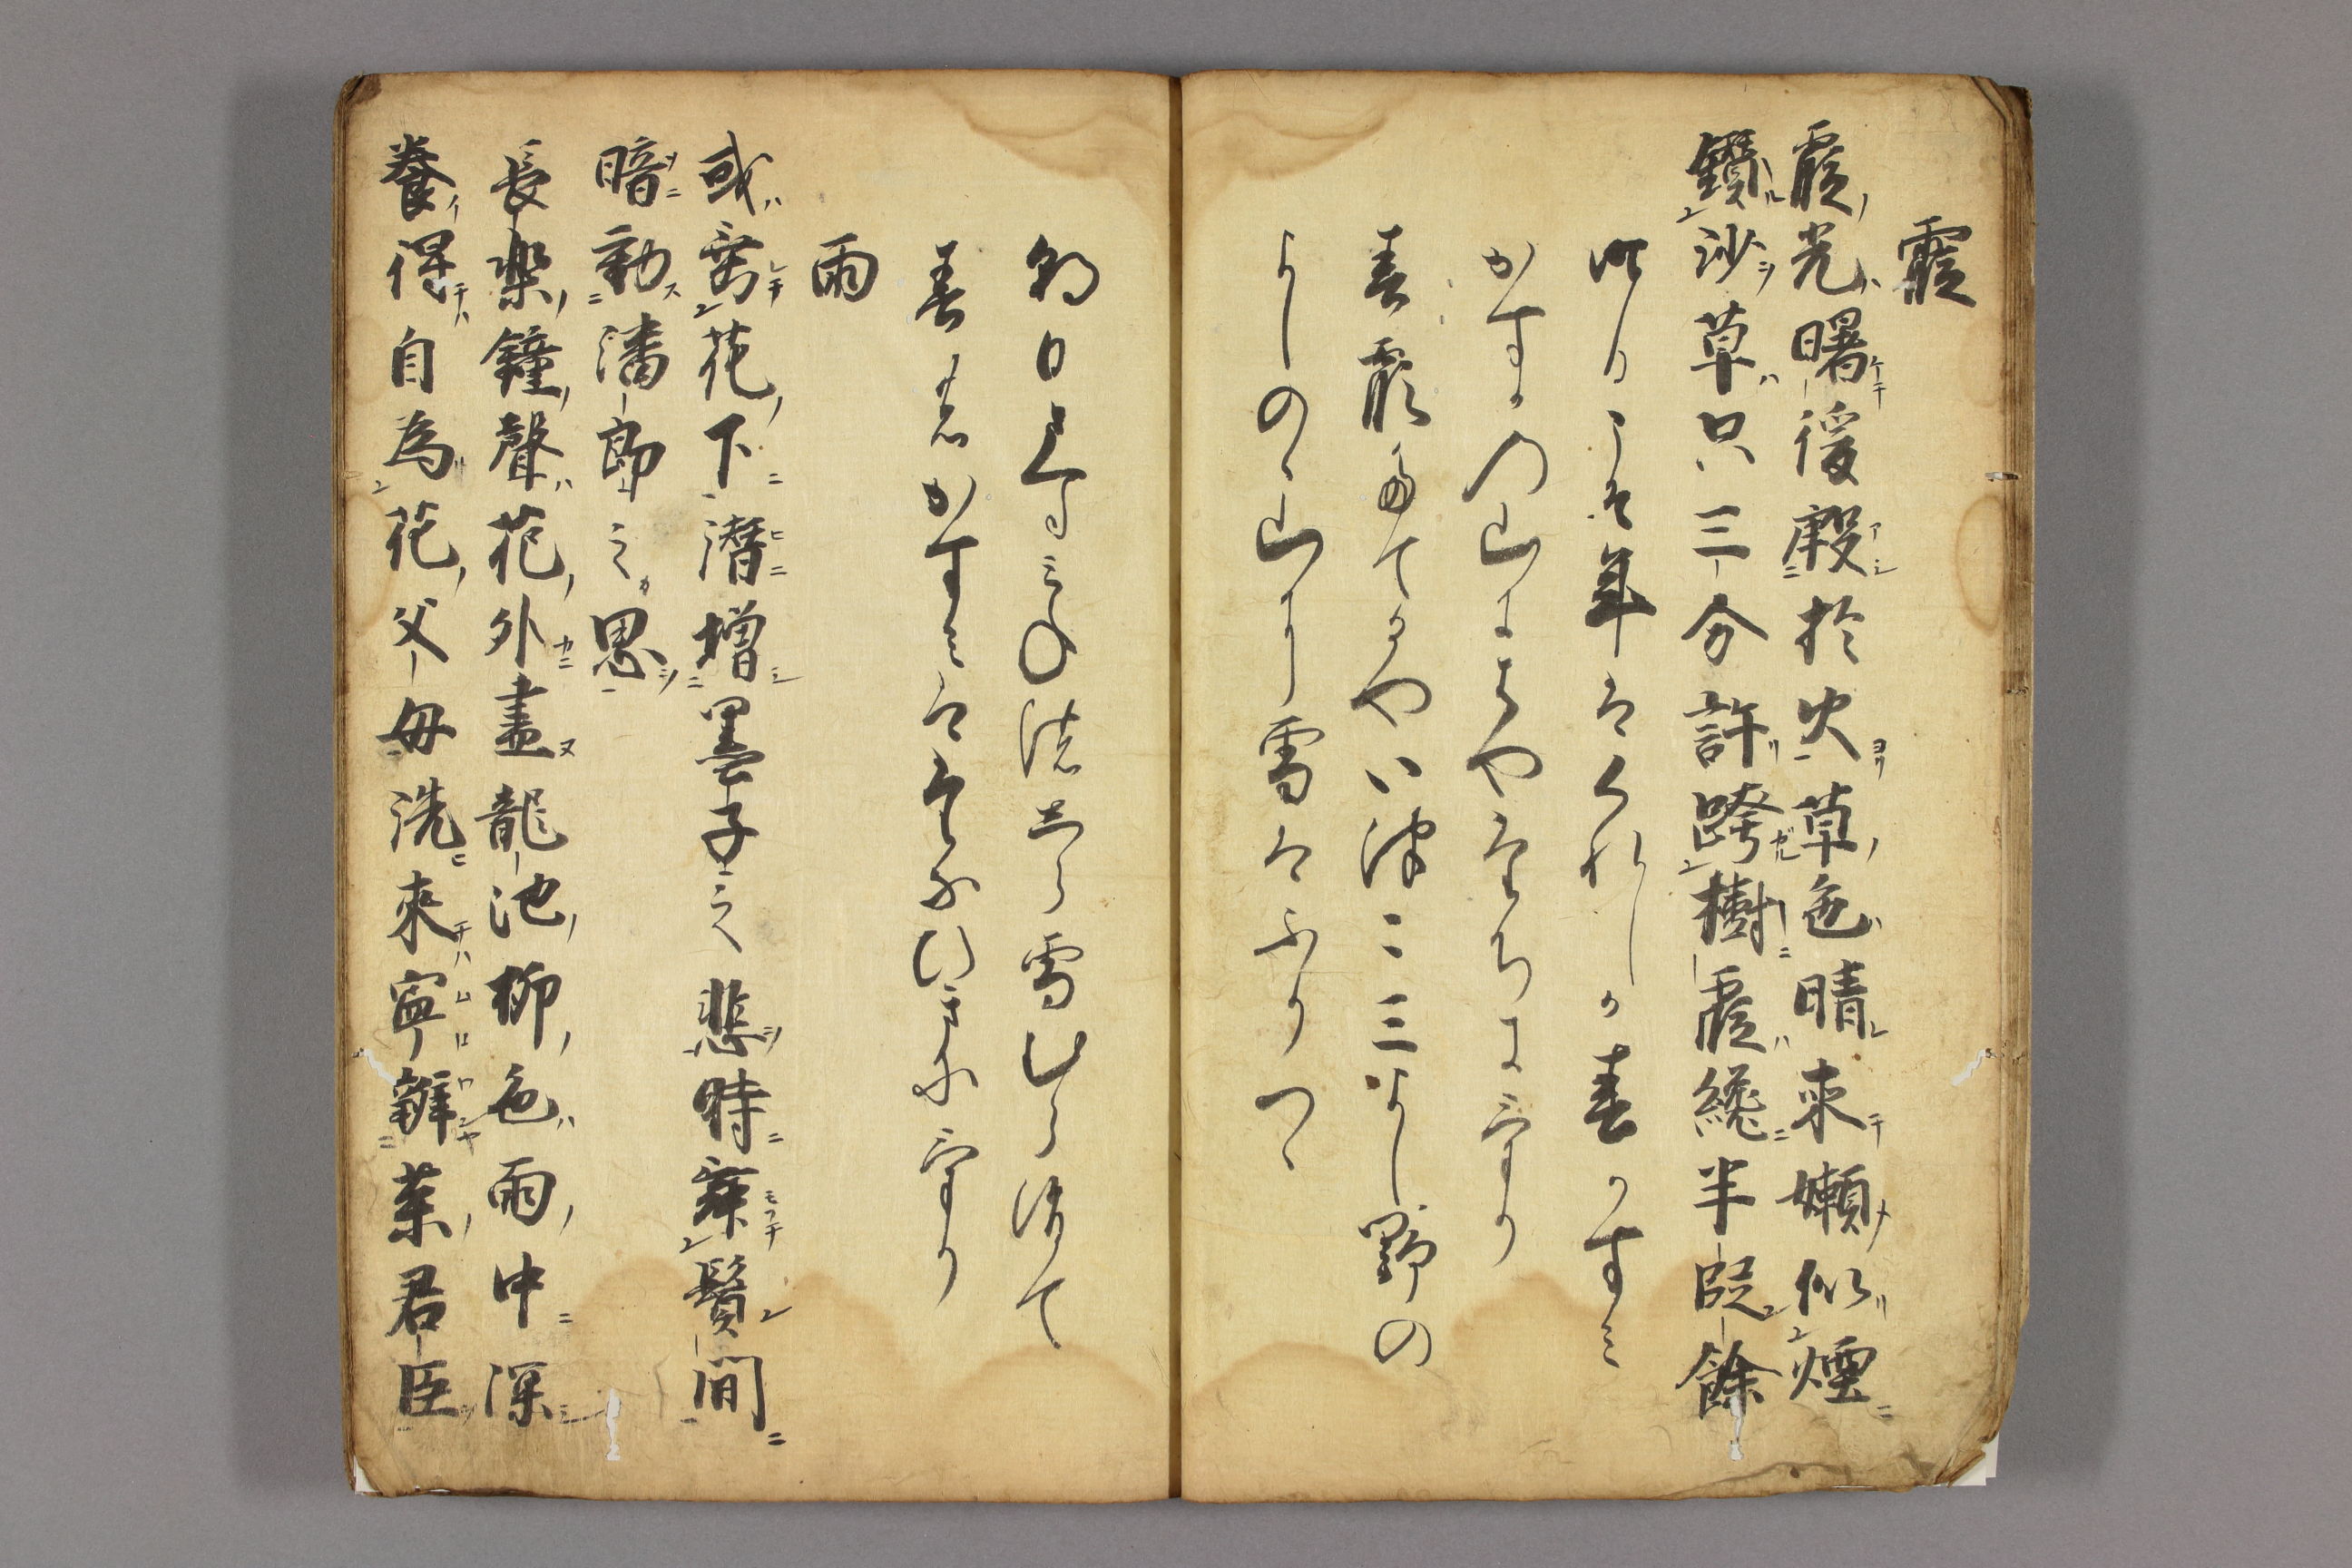 霞
霞光曙後殷於火草色晴来嬾似煙
鑽沙草只三分許跨樹霞纔半段餘
昨日こそ年はくれしか春かすみ
かすかの山にはやたちにけり
春霞たてるやいつこ三よし野の
よしのゝ山に雪はふりつゝ
朝日さすみね能しら雪むら消て
春のかすみはたなひきにけり
雨
或寄花下潜増墨子之悲時舞鬢間
暗動潘郎之思
長楽鐘聲花外盡龍池柳色雨中深
養得自為花父母洗来寧辨薬君臣